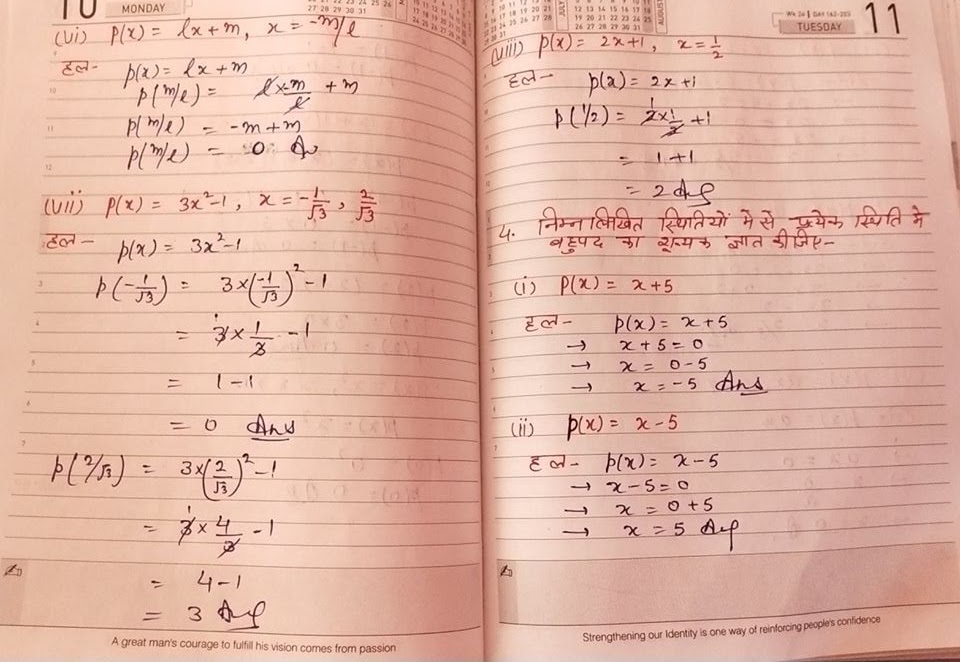 10 MONDAY
(vi) p(x) = lx+m, x = -m/l
हल- p(x) = lx+m
p(m/l) = l×-m/l + m
p(m/l) = -m+m
p(m/l) = 0 An
(vii) p(x) = 3x²-1, x = -1/√3, 2/√3
हल-
p(x) = 3x²-1
p(-1/√3) = 3×(-1/√3)² -1
= 3×1/3 -1
= 1-1
= 0 Ans
p(2/√3) = 3×(2/√3)² -1
= 3×4/3 -1
= 4-1
= 3 Ans
A great man's courage to fulfill his vision comes from passion
TUESDAY 11
(viii) p(x) = 2x+1, x = 1/2
हल- p(x) = 2x+1
p(1/2) = 2×1/2 +1
= 1+1
= 2 Ans
4. निम्नलिखित स्थितियों में से प्रत्येक स्थिति में
बहुपद का शून्यक ज्ञात कीजिए-
(i) P(x) = x+5
हल- p(x) = x+5
→ x+5=0
→ x = 0-5
→ x = -5 Ans
(ii) p(x) = x-5
हल- p(x) = x-5
→ x-5=0
→ x = 0+5
→ x = 5 Ans
Strengthening our Identity is one way of reinforcing people's confidence